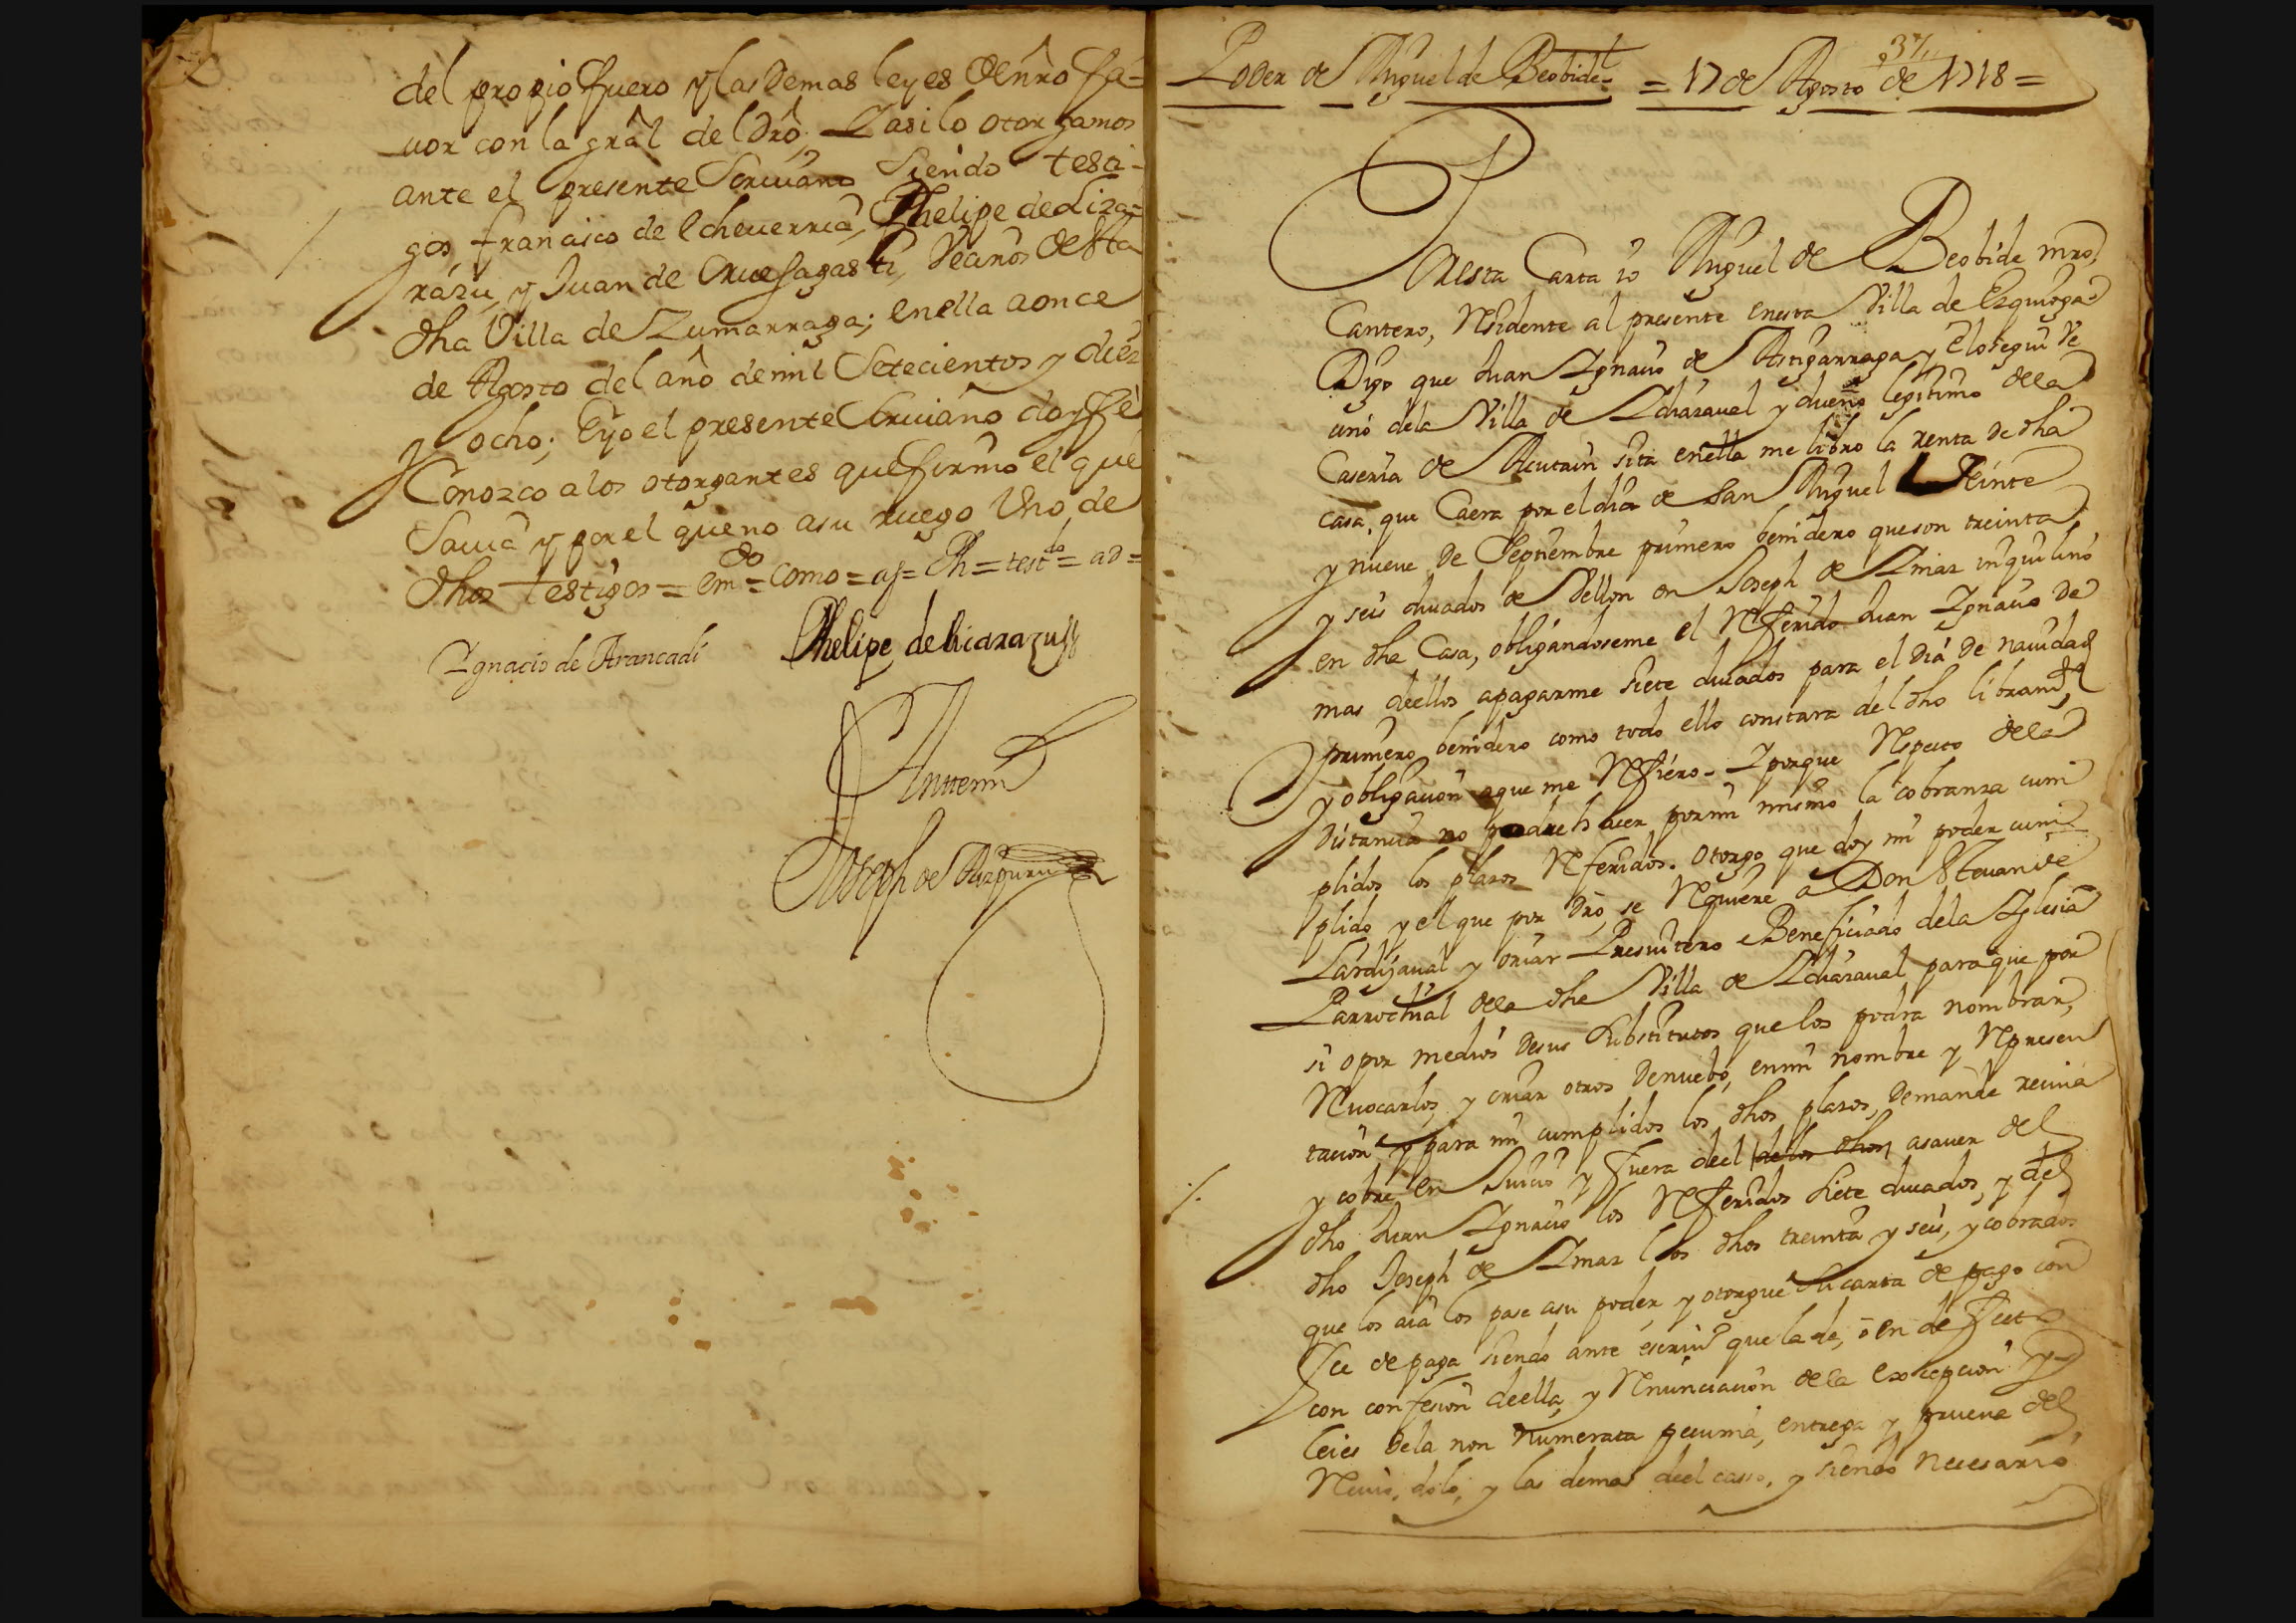 del propio fuero y las demas leyes de nr̃o fa-
uor con la gral del Drõ, Y asi lo otorgamos
ante el presente Scriuano siendo testi-
gos francisco de Echeuerria, Phelipe de Liza-
razu, y Juan de Cruesagasti, Vecinos de Sta
dha Villa de Zumarraga; en ella a once
de Agosto del año de mil Setecientos y diez
y ocho; E yo el presente Scriuano doy fe
Conozco a los otorgantes que firmo el que
Sauia y por el que no a su ruego Vno de
dhos testigos = em.do = como = as = Ph = test.do = ad =
Ignacio de Arancadi Phelipe de licarazu
Ante mi
Joseph de Aizpuru
37
Poder de Miguel de Beobide = 17 de Agosto de 1718 =
Por esta Carta io Miguel de Beobide mro.
Cantero, Residente al presente en esta Villa de Ezquioga
Digo que Juan Ignacio de Astigarraga y Elosegui Ve
cino dela Villa de Ydiazaual y dueño legitimo dela
Caseria de Acutain sita en ella me libro la renta de dha
casa, que Caera por el dia de San Miguel Veinte
y nueue de Septiembre primero benidero que son treinta
y seis ducados de Vellon en Joseph de Ymaz inquilino
en dha Casa, obligandoseme el Referido Juan Ignacio de
mas dellos a pagarme siete ducados para el dia de nauidad
primero benidero como todo ello constara del dho libramto
y obligacion a que me Refiero - Y porque Respecto dela
distancia no podre hacer por mi mismo la cobranza cum
plidos los plazos Referidos. otorgo que doy mi poder cum
plido y el que por drõ se Requiere a Don Steuan de
Lardizaual y oriar Presuitero Beneficiado dela Iglesia
Parrochial dela dha Villa de Ydiazaual para que por
si o por medios de sus substitutos que los podra nombrar,
Reuocarlos, y criar otros de nuebo, en mi nombre y Represen
tacion y para mi cumplidos los dhos plazos, demande reciua
y cobre en Juicio y fuera del de los dhos asauer del
dho Juan Ignacio los Referidos siete ducados, y del
dho Joseph de Ymaz los dhos treinta y seis, y cobrados
que los aia los pase a su poder, y otorgue su carta de pago con
fee de paga siendo ante escriuo que la de, o en defecto
con confesion de ella, y Renunciacion de la excepcion y
leies dela non numerata pecunia, entrega y prueua del
Reciuo, dolo, y las demas deel caso, y siendo necesario